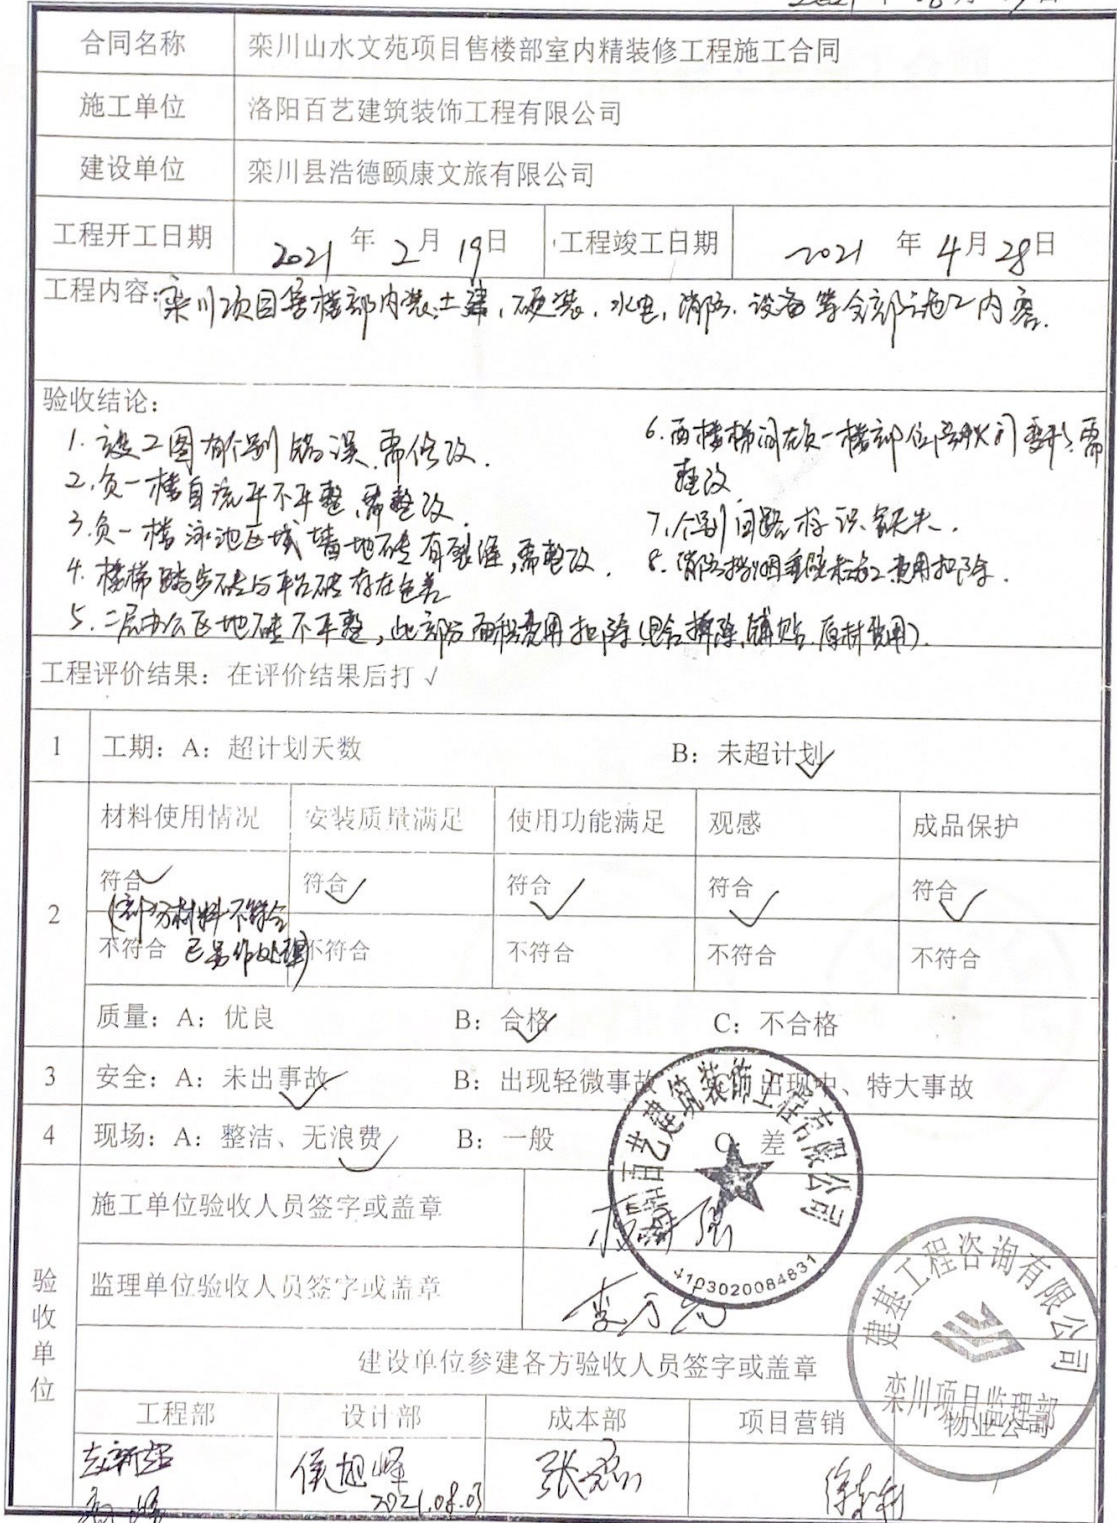 合同名称 栾川山水文苑项目售楼部室内精装修工程施工合同
施工单位 洛阳百艺建筑装饰工程有限公司
建设单位 栾川县浩德颐康文旅有限公司
工程开工日期 2021 年 2 月 19 日 工程竣工日期 2021 年 4 月 28 日
工程内容：栾川项目售楼部内装：土建，硬装，水电，消防、设备等全部施工内容.
验收结论：
1. 竣工图有个别错误，需修改.
2. 负一楼自流平不平整，需整改.
3. 负一楼泳池区域墙地砖有裂缝，需整改.
4. 楼梯踏步砖与平台砖存在色差
5. 二层办公区地砖不平整，此部分面积费用扣除（包含拆除、铺贴、原材费用）.
6. 西楼梯间在负一楼部位防火门变形，需
整改.
7. 个别回路标识缺失.
8. 消防挡烟垂壁未施工费用扣除.
工程评价结果：在评价结果后打√
1 工期：A：超计划天数 B：未超计划
2
材料使用情况 安装质量满足 使用功能满足 观感 成品保护
符合 符合 符合 符合 符合
（部分材料不符合
已另作处理）
不符合 不符合 不符合 不符合 不符合
质量：A：优良 B：合格 C：不合格
3 安全：A：未出事故 B：出现轻微事故 C：出现中、特大事故
4 现场：A：整洁、无浪费 B：一般 C：差
百艺建筑装饰工程有限公司
4103020084831
验收单位
施工单位验收人员签字或盖章
监理单位验收人员签字或盖章
建基工程咨询有限公司
栾川项目监理部
建设单位参建各方验收人员签字或盖章
工程部 设计部 成本部 项目营销 物业公司
侯旭峰
2021.08.03